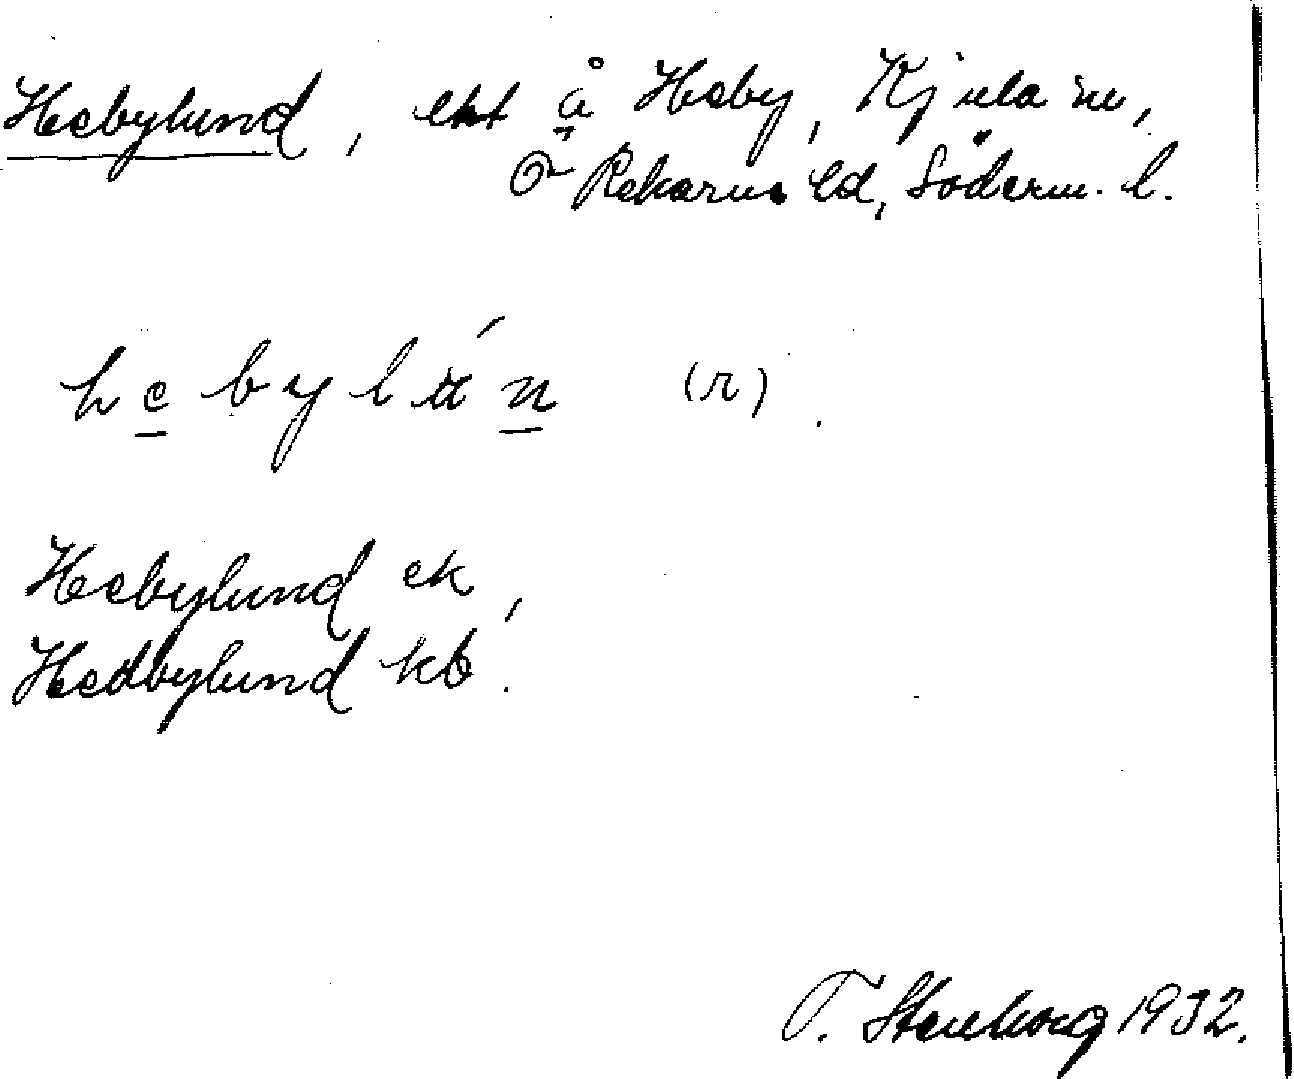 Hebylund, lht å Heby, Kjula sn,
Ö Rekarne hd, Söderm. l.
hebylún (r).
Hebylund ek,
Hedbylund kb.
T. Stenborg 1932.